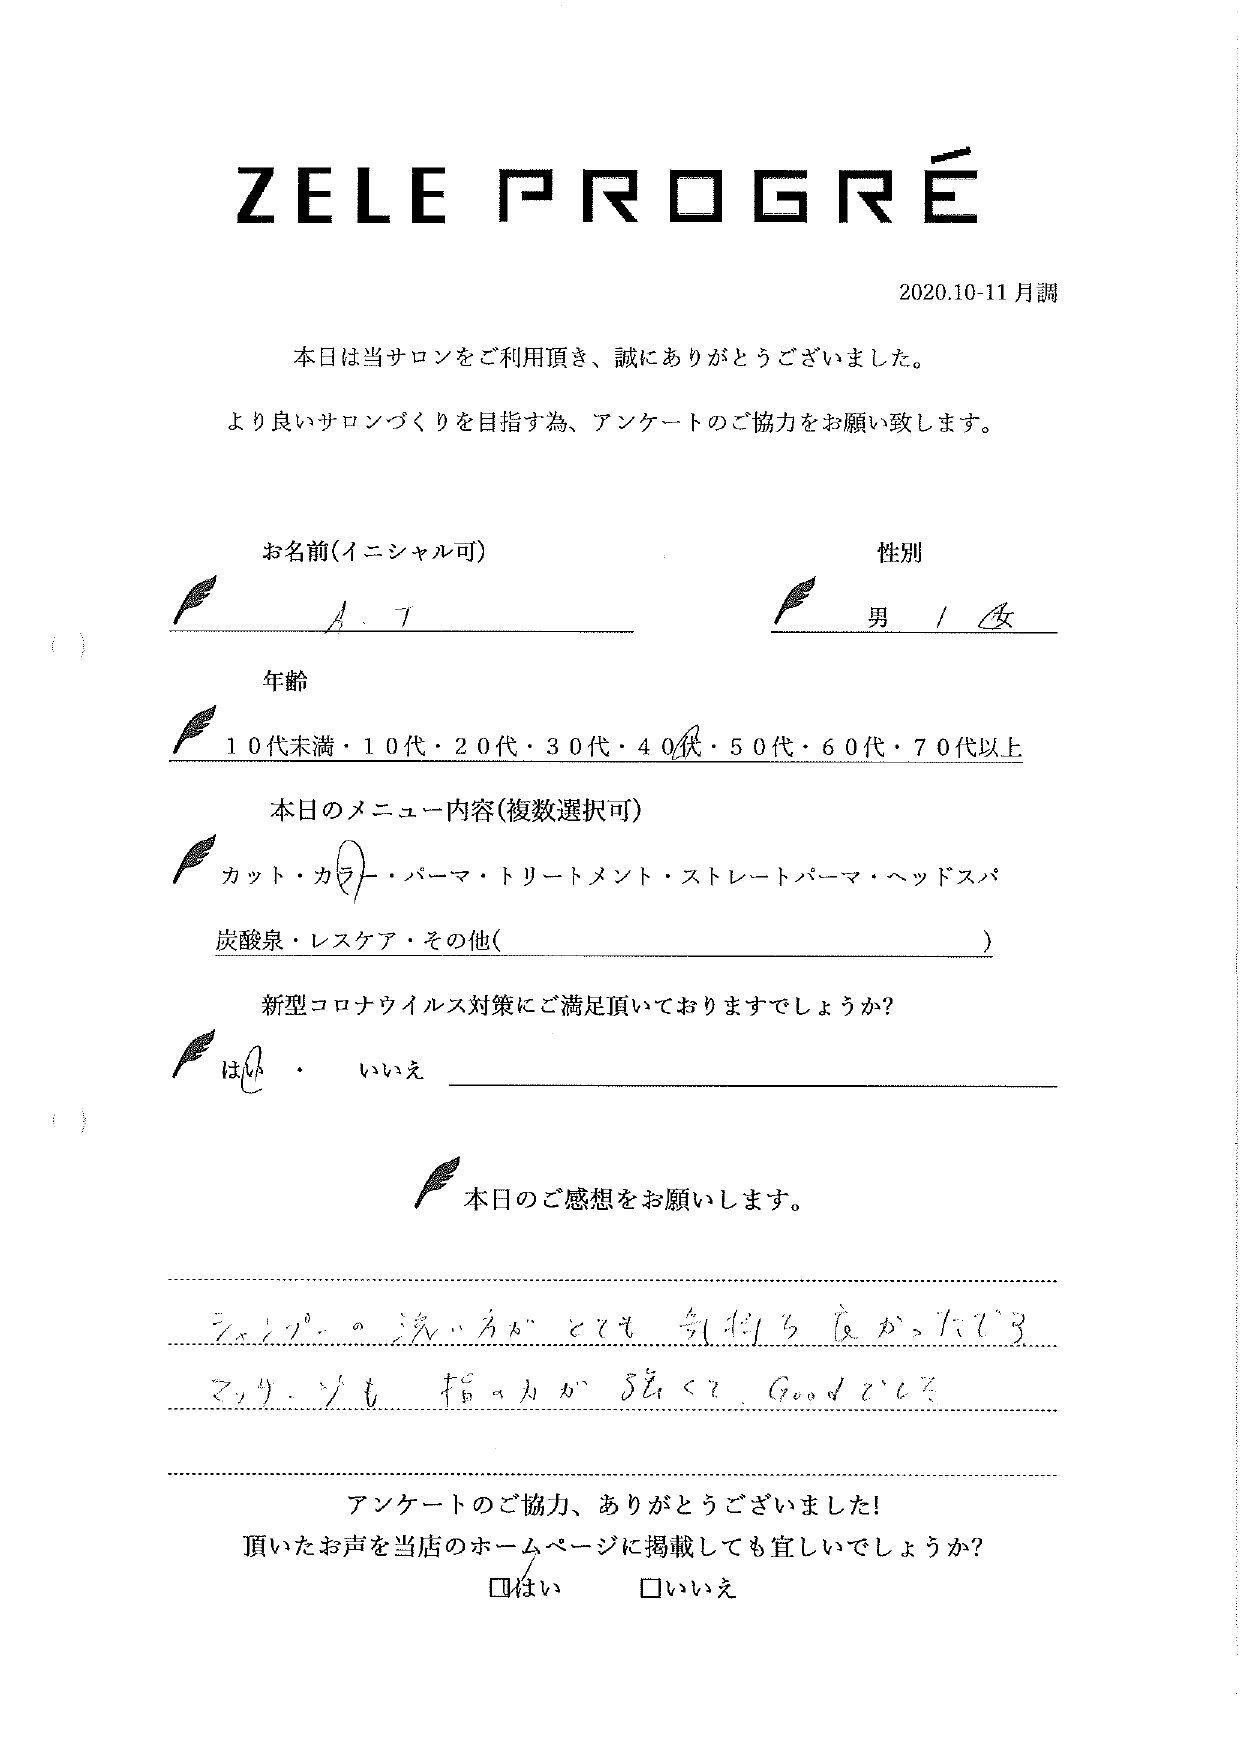 ZELE PROGRÉ
2020.10-11 月調
本日は当サロンをご利用頂き、誠にありがとうございました。
より良いサロンづくりを目指す為、アンケートのご協力をお願い致します。
お名前(イニシャル可) 性別
A.T 男 / 女
年齢
１０代未満・１０代・２０代・３０代・４０代・５０代・６０代・７０代以上
本日のメニュー内容(複数選択可)
カット・カラー・パーマ・トリートメント・ストレートパーマ・ヘッドスパ
炭酸泉・レスケア・その他( )
新型コロナウイルス対策にご満足頂いておりますでしょうか?
はい ・ いいえ
本日のご感想をお願いします。
シャンプーの洗い方がとても気持ち良かったです
マッサージも 指の力が強くて Goodでした
アンケートのご協力、ありがとうございました!
頂いたお声を当店のホームページに掲載しても宜しいでしょうか?
□はい □いいえ